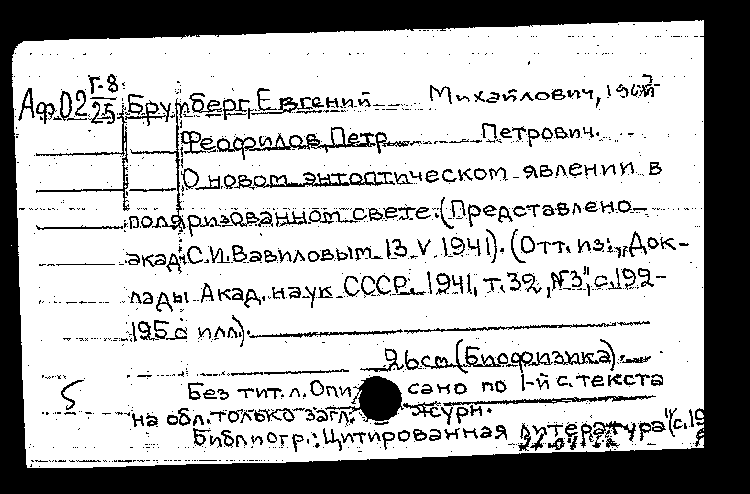 Аф02 Г-8/25 Брумберг, Евгений Михайлович, 1907
Феофилов, Петр Петрович.
О новом энтоптическом явлении в
поляризованном свете. (Представлено
акад. С.И. Вавиловым 13 V 1941). (Отт. из: „Док-
лады Акад. наук СССР. 1941, т. 32, №3", с. 192-
195 с илл).
Яьст (Биофизика).
5 Без тит. л. Описано по 1-й с. текста
на обл. только загл. журн.
Библиогр.: Цитированная литература" (с. 19